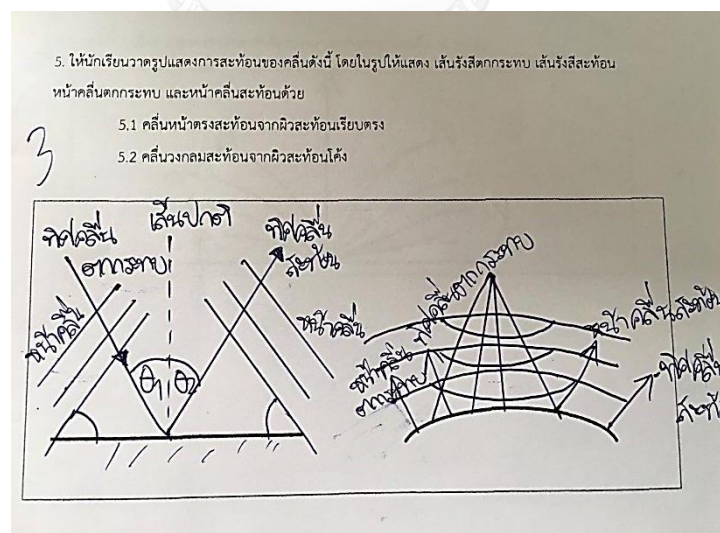 5. ให้นักเรียนวาดรูปแสดงการสะท้อนของคลื่นดังนี้ โดยในรูปให้แสดง เส้นรังสีตกกระทบ เส้นรังสีสะท้อน
หน้าคลื่นตกกระทบ และหน้าคลื่นสะท้อนด้วย
5.1 คลื่นหน้าตรงสะท้อนจากผิวสะท้อนเรียบตรง
5.2 คลื่นวงกลมสะท้อนจากผิวสะท้อนโค้ง
3
ทิศคลื่น
ตกกระทบ
เส้นปกติ
ทิศคลื่น
สะท้อน
หน้าคลื่น
หน้าคลื่น
θ1 θ2
ทิศคลื่นตกกระทบ
หน้าคลื่น
ตกกระทบ
หน้าคลื่นสะท้อน
ทิศคลื่น